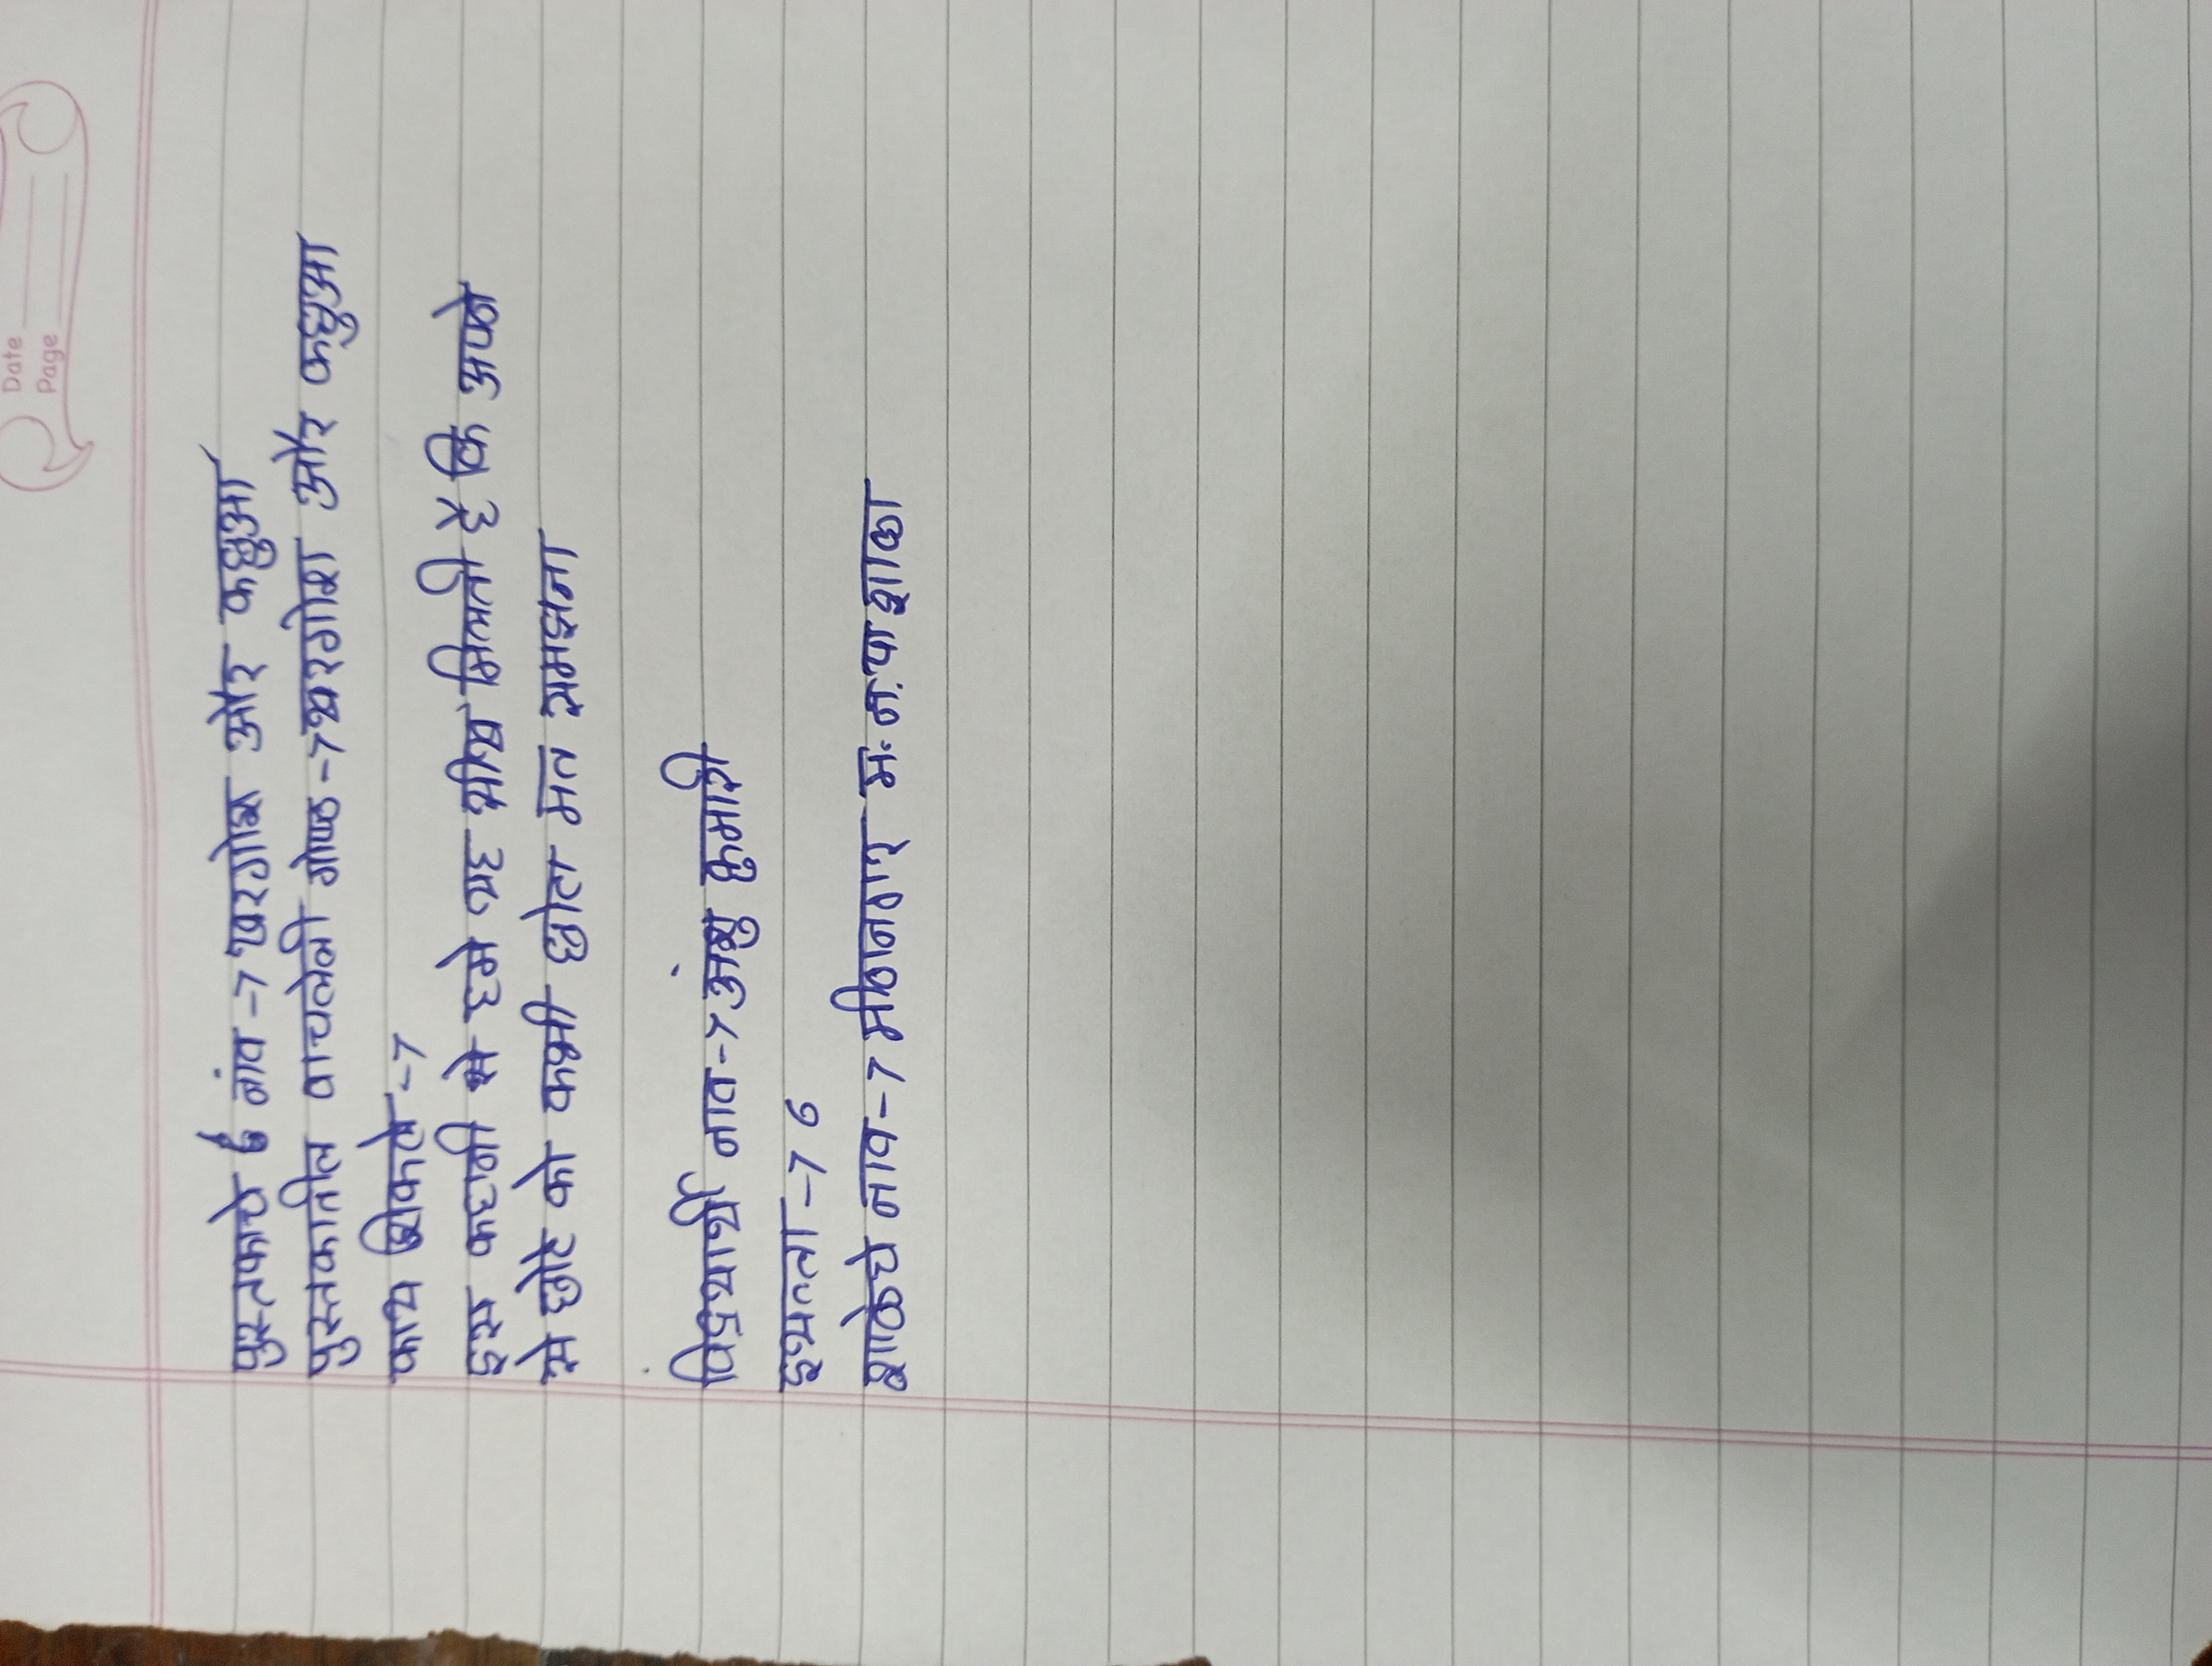 Date
Page
पुस्तकाचे नांव -> खरगोश और कछुआ
पुस्तकातील वाचलेली गोष्ठ -> खरगोश और कछुआ
काय शिकले ->
इस कहानी से हमे यह सीख मिलती है कि अपने
से छोटे को कभी छोटा मत समझना
विद्रयार्थी नाव -> अंशु कुमारी
इयत्ता -> 6
शाळेचे नाव -> मीठानगर म. न. पा शाळा